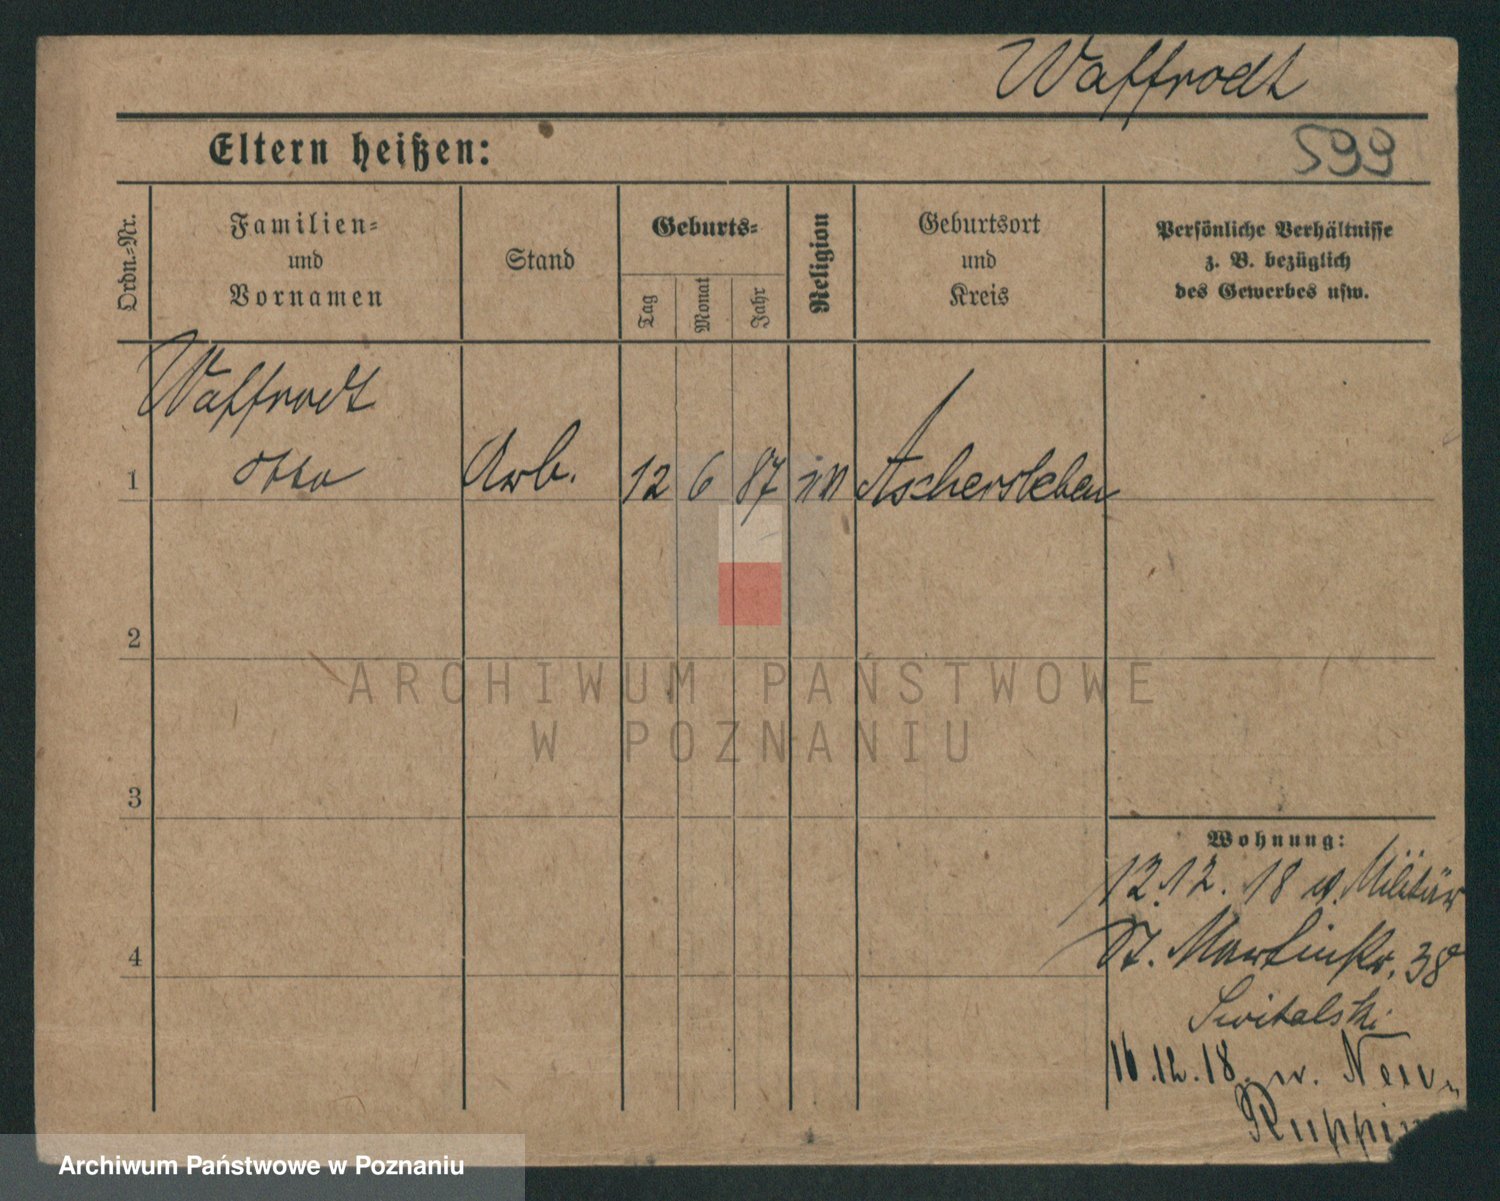 Waffrodt
599
Eltern heißen:
Ordn.-Nr.
Familien-
und
Vornamen
Stand
Geburts-
Tag
Monat
Jahr
Religion
Geburtsort
und
Kreis
Persönliche Verhältnisse
z. B. bezüglich
des Gewerbes usw.
Waffrodt
1 Otto Arb. 12 6 87 Aschersleben
2
3
4
Wohnung:
12.12.18 v. Militär
St. Martinstr. 38
Switalski
16.12.18. n. Neu-
Ruppin
ARCHIWUM PAŃSTWOWE
W POZNANIU
Archiwum Państwowe w Poznaniu